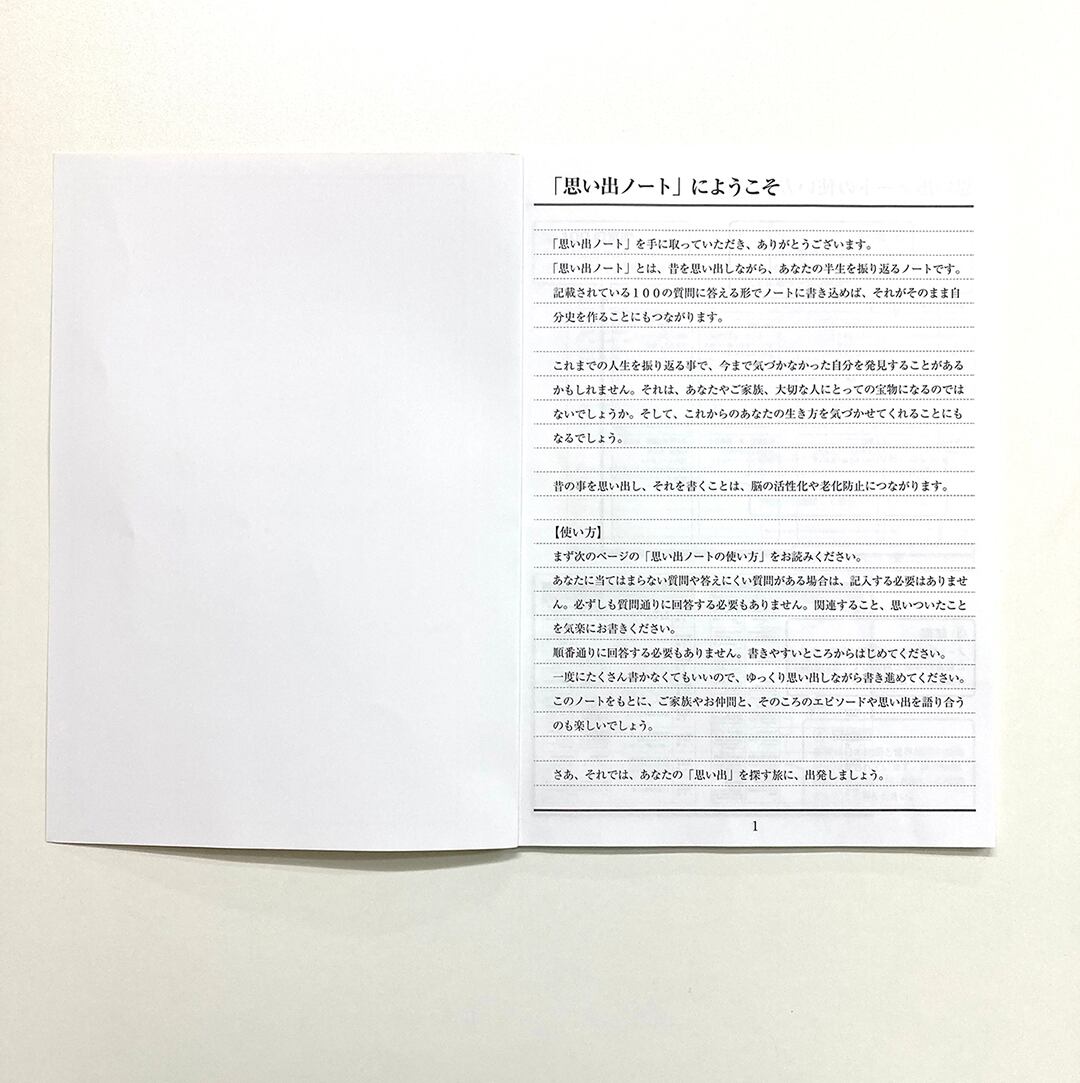 「思い出ノート」にようこそ
「思い出ノート」を手に取っていただき、ありがとうございます。
「思い出ノート」とは、昔を思い出しながら、あなたの半生を振り返るノートです。
記載されている１００の質問に答える形でノートに書き込めば、それがそのまま自
分史を作ることにもつながります。
これまでの人生を振り返る事で、今まで気づかなかった自分を発見することがある
かもしれません。それは、あなたやご家族、大切な人にとっての宝物になるのでは
ないでしょうか。そして、これからのあなたの生き方を気づかせてくれることにも
なるでしょう。
昔の事を思い出し、それを書くことは、脳の活性化や老化防止につながります。
【使い方】
まず次のページの「思い出ノートの使い方」をお読みください。
あなたに当てはまらない質問や答えにくい質問がある場合は、記入する必要はありませ
ん。必ずしも質問通りに回答する必要もありません。関連すること、思いついたこと
を気楽にお書きください。
順番通りに回答する必要もありません。書きやすいところからはじめてください。
一度にたくさん書かなくてもいいので、ゆっくり思い出しながら書き進めてください。
このノートをもとに、ご家族やお仲間と、そのころのエピソードや思い出を語り合う
のも楽しいでしょう。
さあ、それでは、あなたの「思い出」を探す旅に、出発しましょう。
1